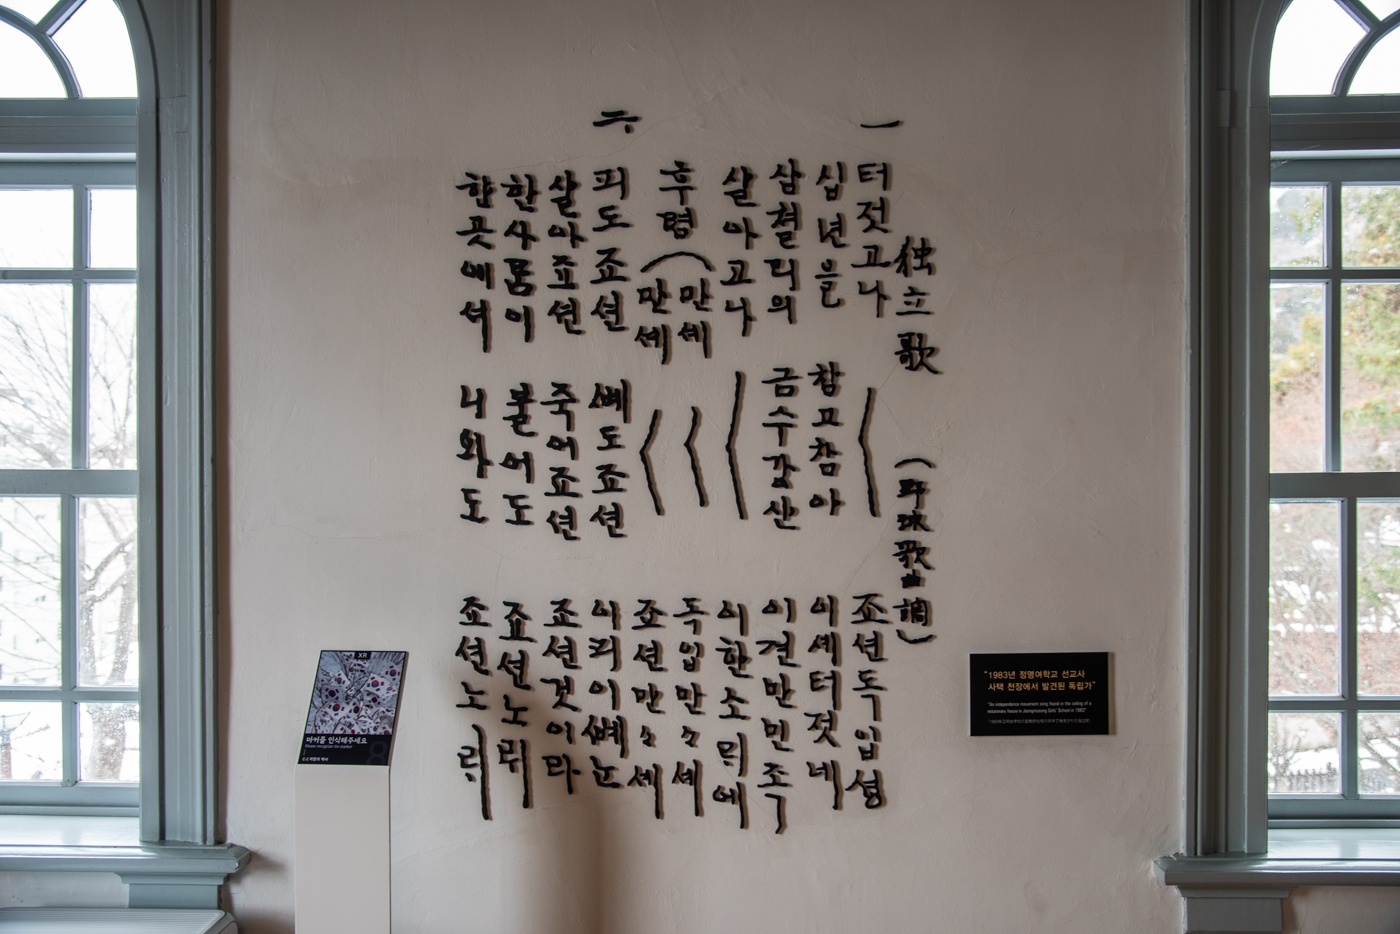 独立歌 (野球歌曲調)
一
터젓고나 죠션독입셩
십년을 참고참아 이셰터젓네
삼쳘리의 금수강산 이쳔만민죡
살아고나 이한소릐에
후렴 (만세 독입만々세
만세 죠션만々세
二
피도죠션 뼤도죠션 이피이뼤눈
살아죠션 죽어죠션 죠션것이라
한사룸이 불어도 죠션노릐
한곳에셔 니와도 죠션노릐
"1983년 정명여학교 선교사
사택 천장에서 발견된 독립가"
"An independence movement song found in the ceiling of a
missionary house in Jeongmyeong Girls' School in 1983"
XR
마커를 인식해주세요
Please recognize the marker